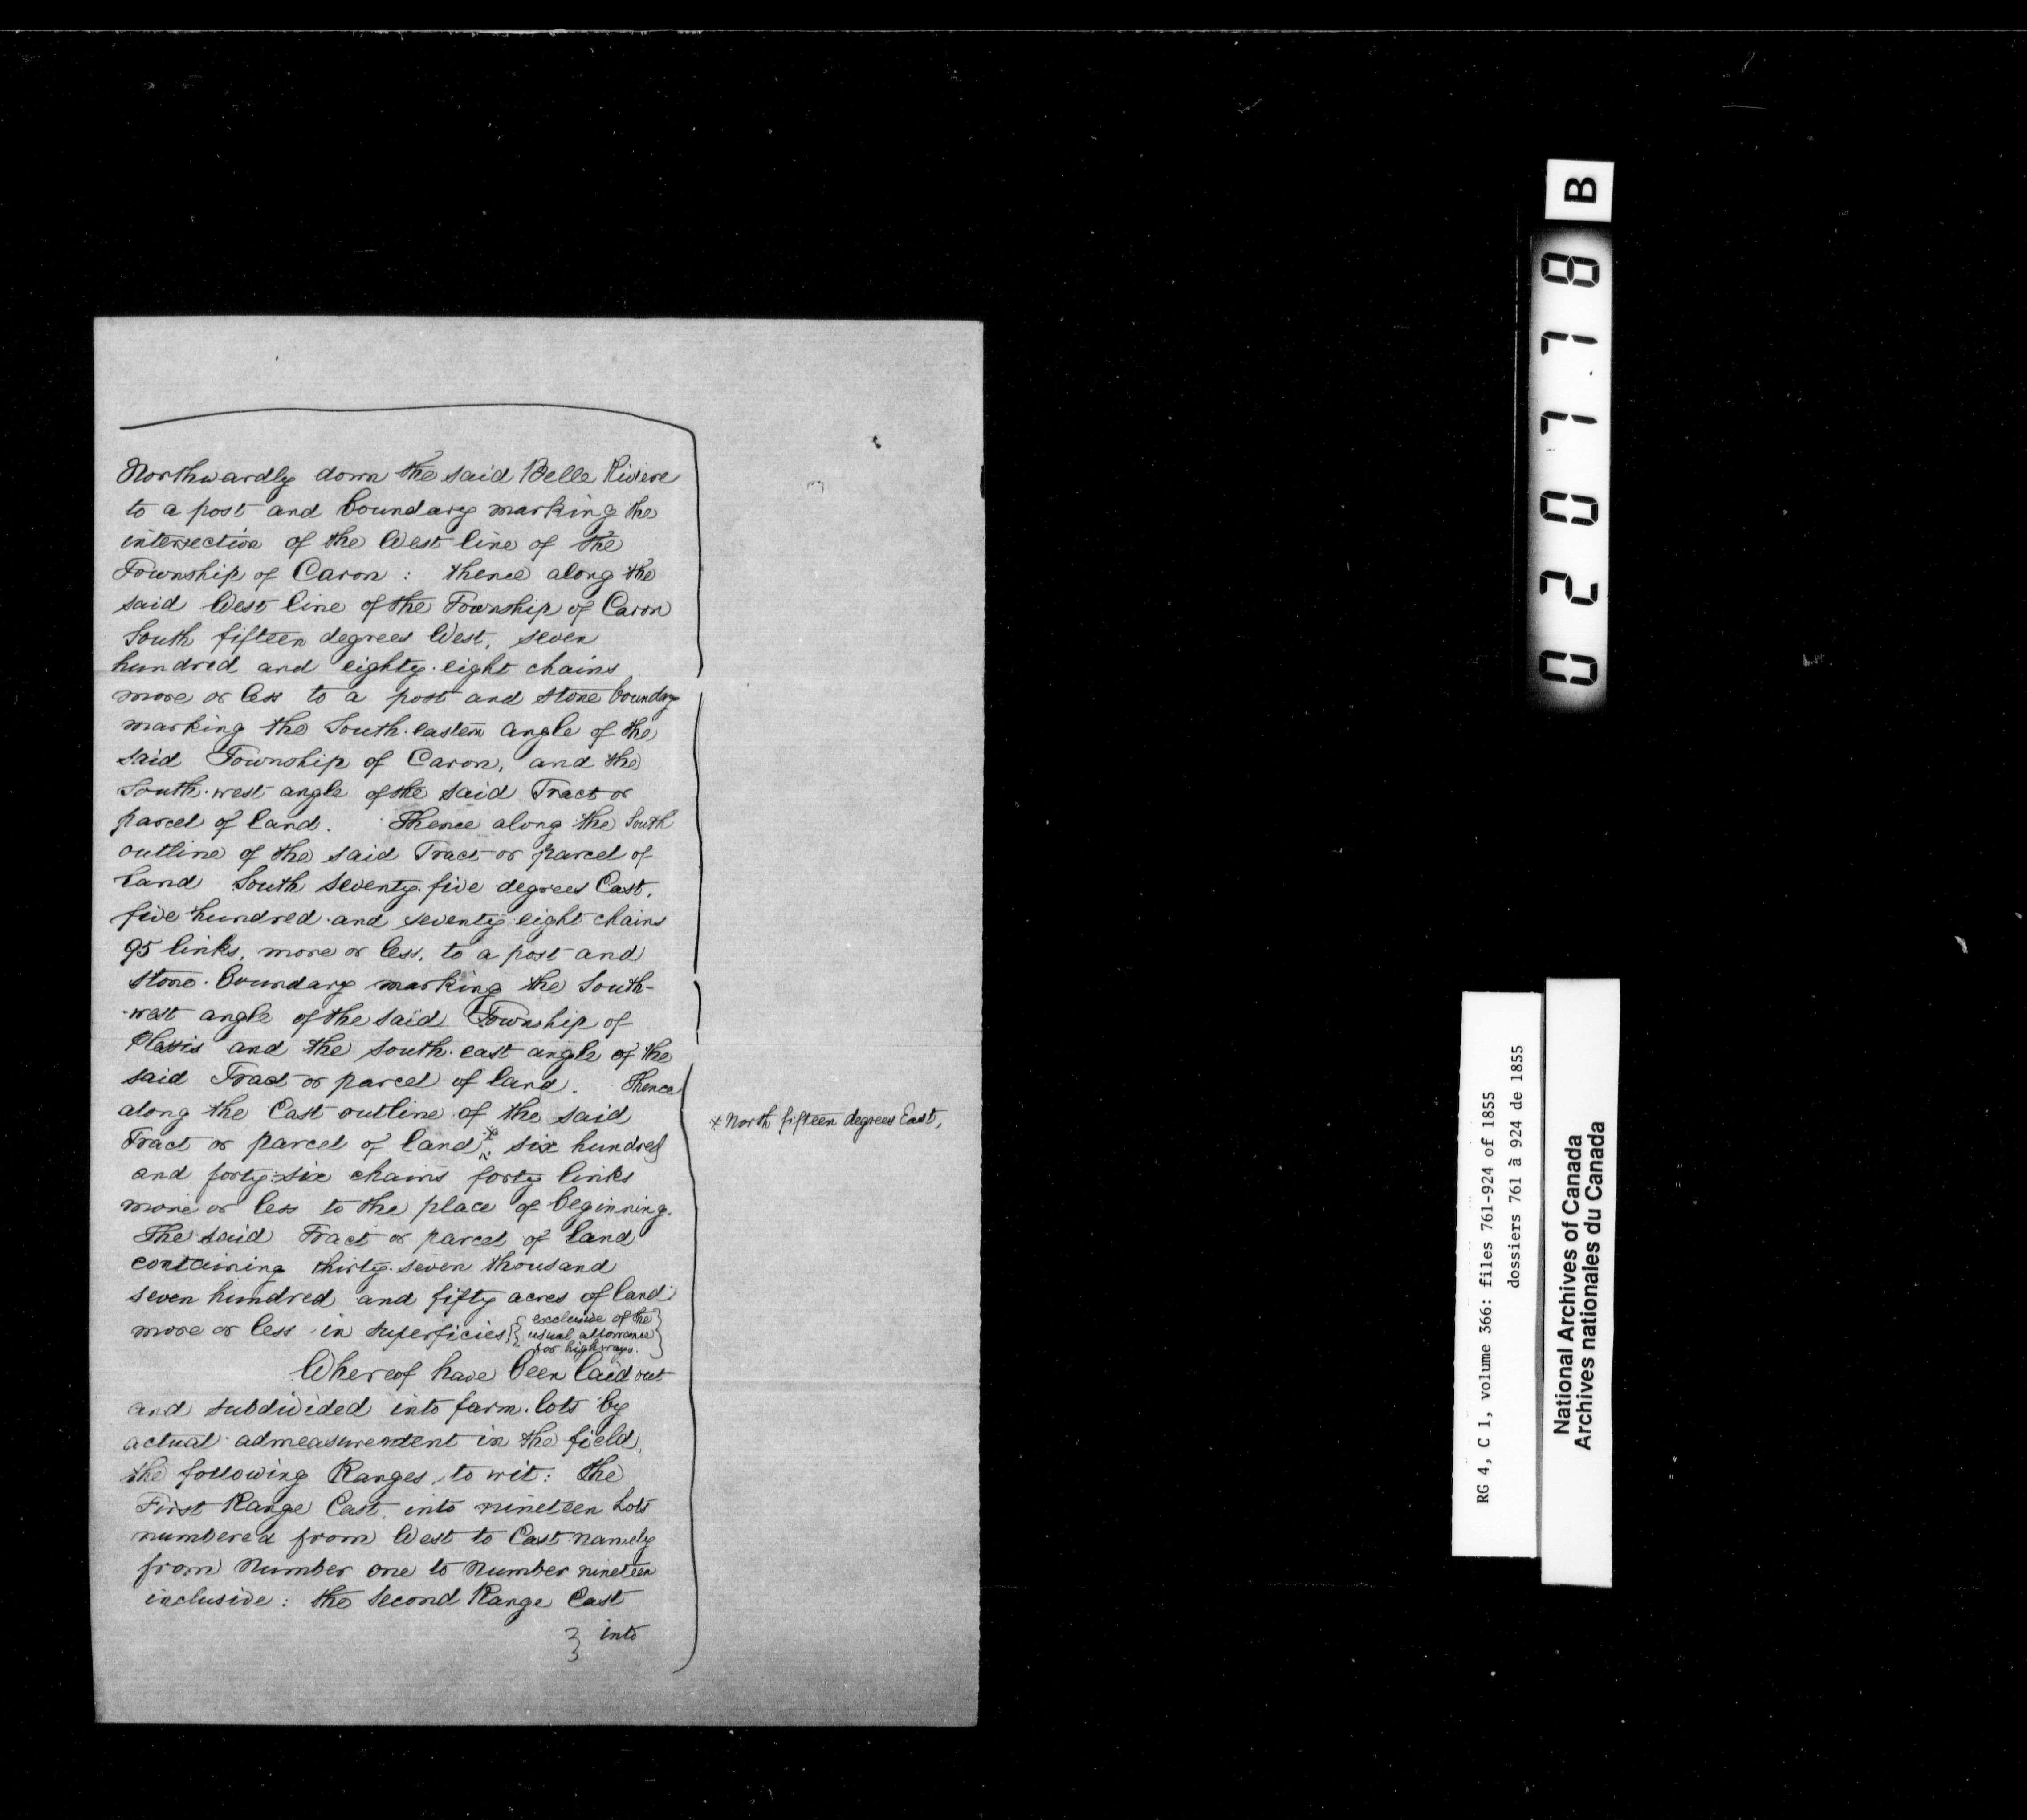 Northwardly down the said Belle Riviere
to a post and boundary marking the
intersection of the West line of the
Township of Caron : thence along the
said West line of the Township of Caron
South fifteen degrees West, seven
hundred and eighty-eight chains
more or less to a post and stone boundary
marking the South-eastern angle of the
said Township of Caron, and the
South-west angle of the said Tract or
parcel of land. Thence along the South
outline of the said Tract or parcel of
Land South seventy-five degrees East,
five hundred and seventy-eight chains
95 links, more or less, to a post and
stone-boundary marking the South-
-west angle of the said Township of
Plessis and the south-east angle of the
said Tract or parcel of land. Thence
along the East outline of the said
Tract or parcel of land * six hundred
* North fifteen degrees East,
and forty-six chains forty links
more or less to the place of beginning.
The said Tract or parcel of land
containing thirty-seven thousand
seven hundred and fifty acres of land
more or less in superficies { exclusive of the
usual allowance
for highways. }
Whereof have been laid out
and subdivided into farm-lots by
actual admeasurement in the field,
the following Ranges, to wit: the
First Range East, into nineteen Lots
numbered from West to East namely
from Number one to Number nineteen
inclusive : the Second Range East
} into
020778 B
RG 4, C 1, volume 366: files 761-924 of 1855
dossiers 761 à 924 de 1855
National Archives of Canada
Archives nationales du Canada